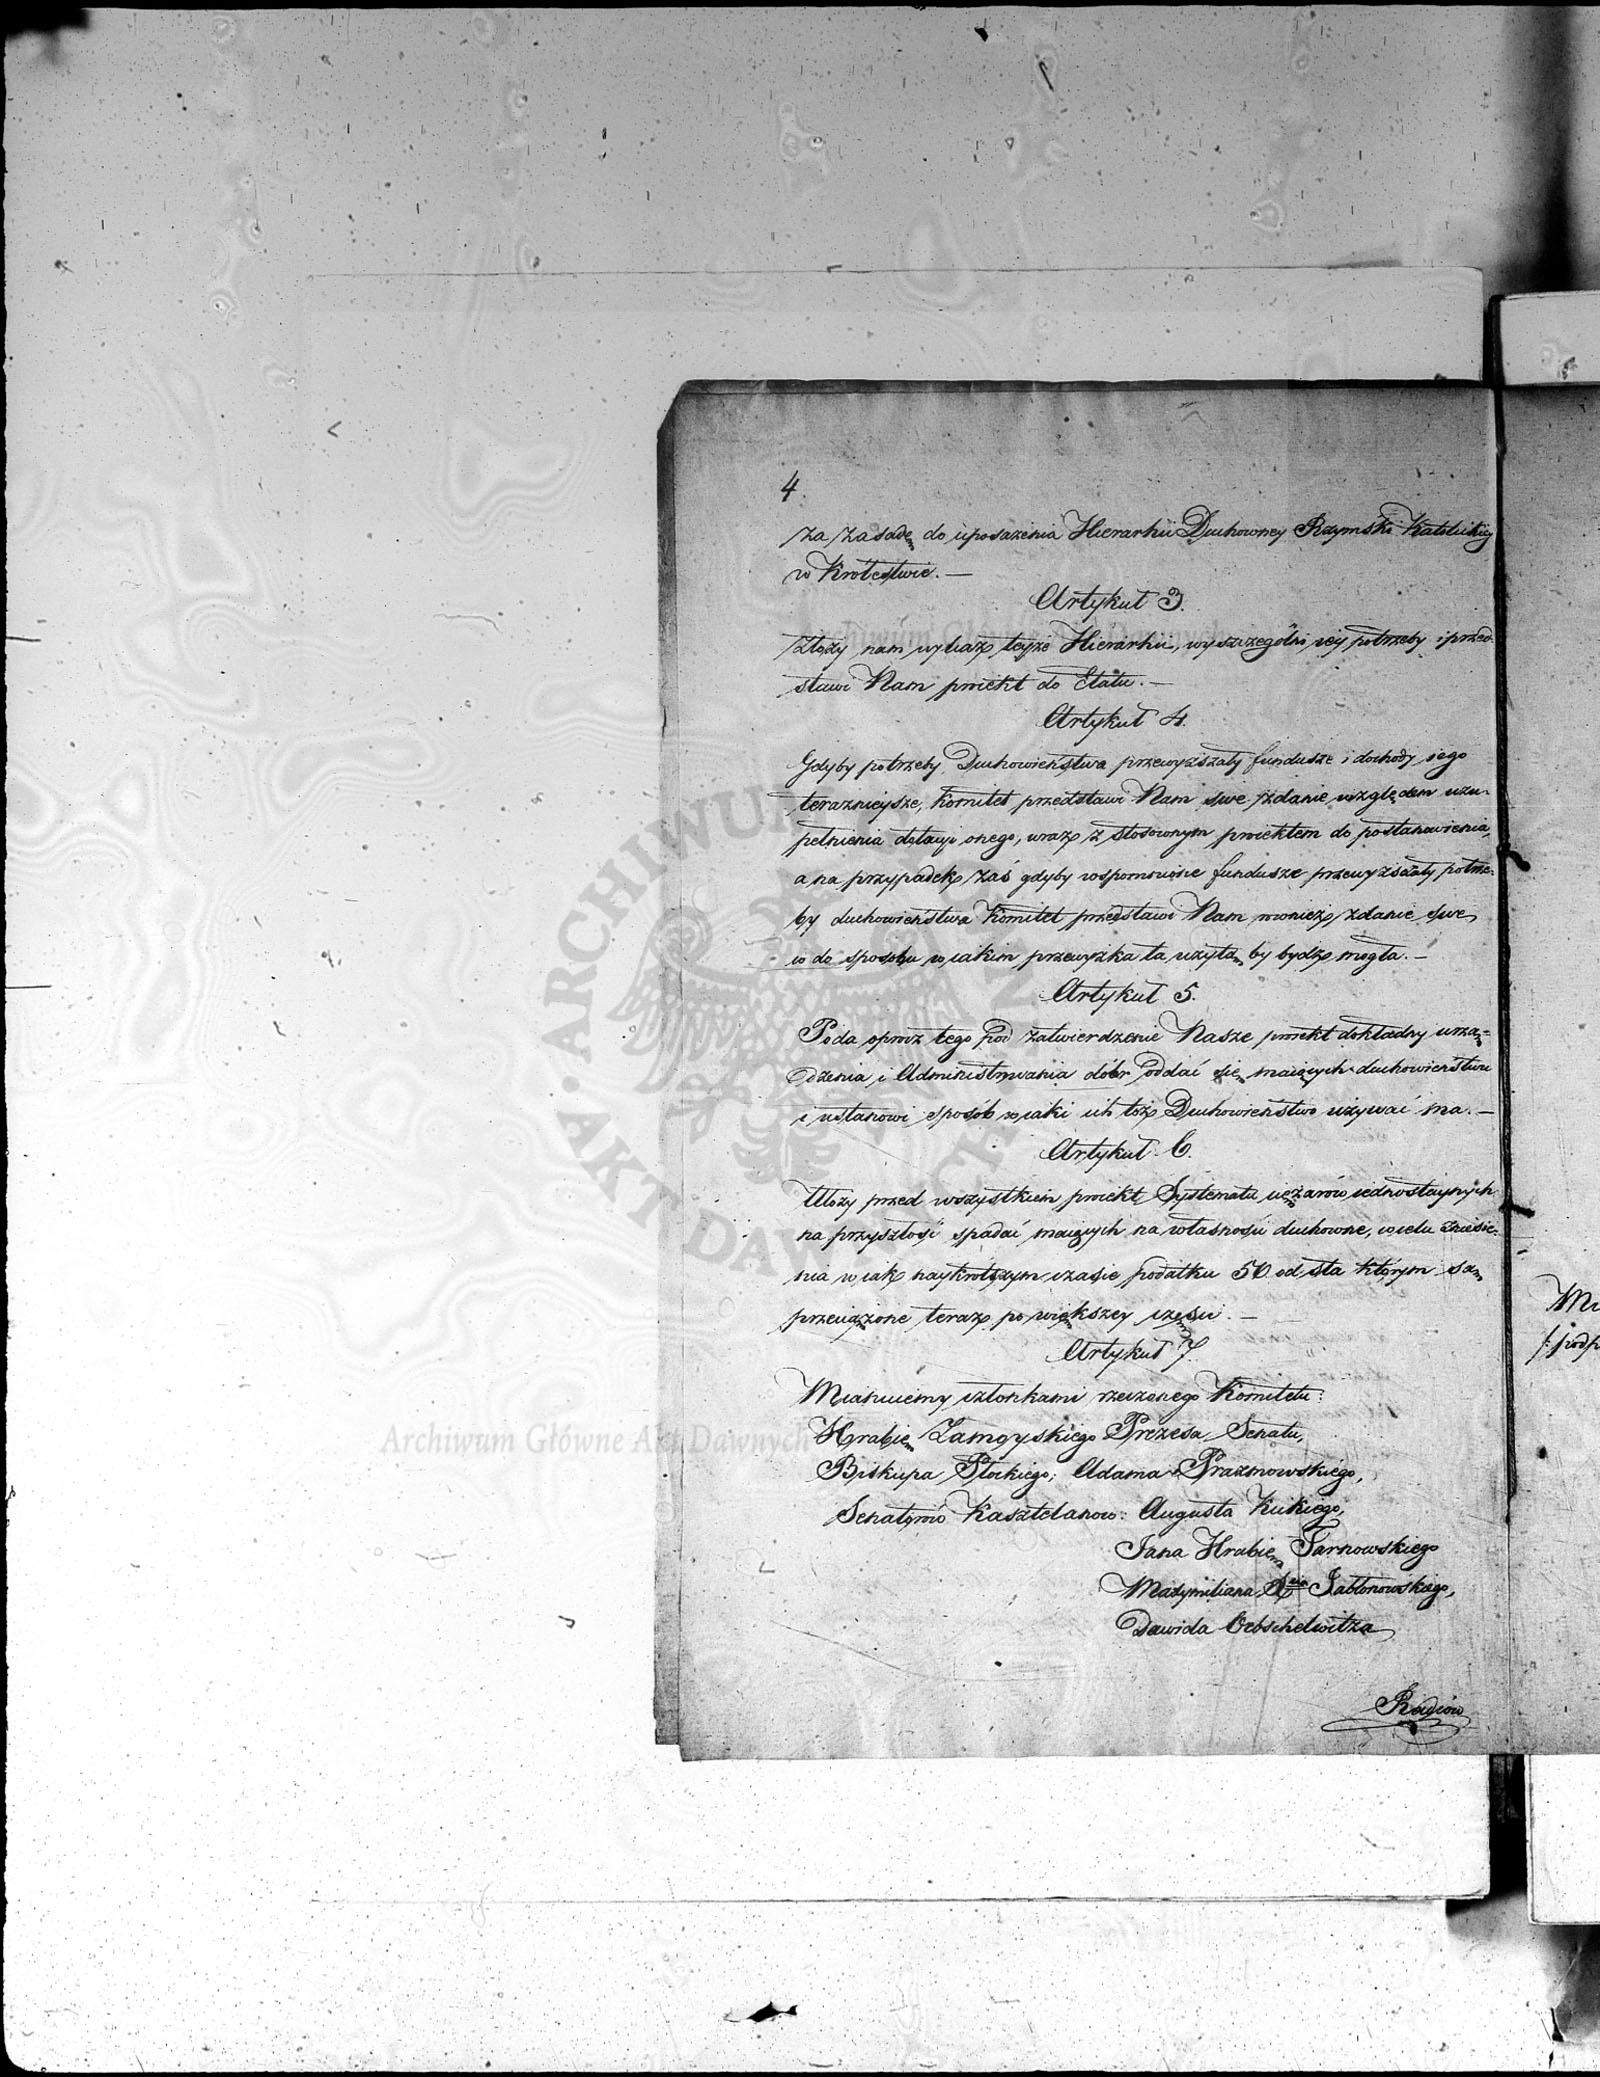 4.
za zasadę do uposażenia Hierarhii Duchowney Rzymsko Katolickiey
w Krolestwie. —
Artykuł 3.
Złoży nam wykaz teyże Hierarhii, wyszczegolni iey potrzeby i przed-
stawi Nam proiekt do Etatu. —
Artykuł 4.
Gdyby potrzeby Duchowieństwa przewyższały fundusze i dochody iego
teraznieysze, Komitet przedstawi Nam swe zdanie względem uzu-
pełnienia dotacyi onego, wraz z stosownym proiektem do postanowienia,
a na przypadek zaś gdyby wspomnione fundusze przewyższały potrze-
by duchowieństwa Komitet przedstawi Nam rownież zdanie swe,
co do sposobu w iakim przewyżka ta użytą by bydz mogła. —
Artykuł 5.
Poda oprocz tego pod zatwierdzenie Nasze proiekt dokładny urzą-
dzenia i Administrowania dóbr oddać się maiących duchowieństwu
i ustanowi sposób w iaki ich toż Duchowieństwo używać ma. —
Artykuł 6.
Ułoży przed wszystkiem proiekt Systematu ciężarów iednostaynych
na przyszłość spadać maiących na własności duchowne, w celu zniesie-
nia w iak naykrotszym czasie podatku 50 od sta którym są
przeciążone teraz po większey części. —
Artykuł 7.
Mianuiemy członkami rzeczonego Komitetu:
Hrabię Zamoyskiego Prezesa Senatu,
Biskupa Płockiego, Adama Prażmowskiego,
Senatorów Kasztelanow: Augusta Kickiego,
Jana Hrabię Tarnowskiego
Maxymiliana Xcia Jabłonowskiego,
Dawida Oebschelwitza
Radców
Archiwum Główne Akt Dawnych